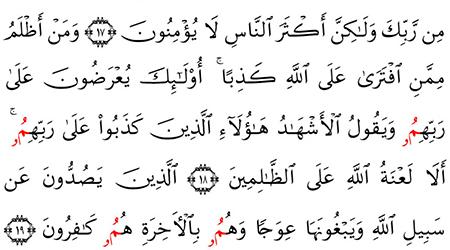 مِن رَّبِّكَ وَلَٰكِنَّ أَكْثَرَ ٱلنَّاسِ لَا يُؤْمِنُونَ ١٧ وَمَنْ أَظْلَمُ
مِمَّنِ ٱفْتَرَىٰ عَلَى ٱللَّهِ كَذِبًا ۚ أُوْلَٰٓئِكَ يُعْرَضُونَ عَلَىٰ
رَبِّهِمُۥ وَيَقُولُ ٱلْأَشْهَٰدُ هَٰٓؤُلَآءِ ٱلَّذِينَ كَذَبُوا۟ عَلَىٰ رَبِّهِمُۥ ۚ
أَلَا لَعْنَةُ ٱللَّهِ عَلَى ٱلظَّٰلِمِينَ ١٨ ٱلَّذِينَ يَصُدُّونَ عَن
سَبِيلِ ٱللَّهِ وَيَبْغُونَهَا عِوَجًا وَهُمُۥ بِٱلْأٓخِرَةِ هُمُۥ كَٰفِرُونَ ١٩